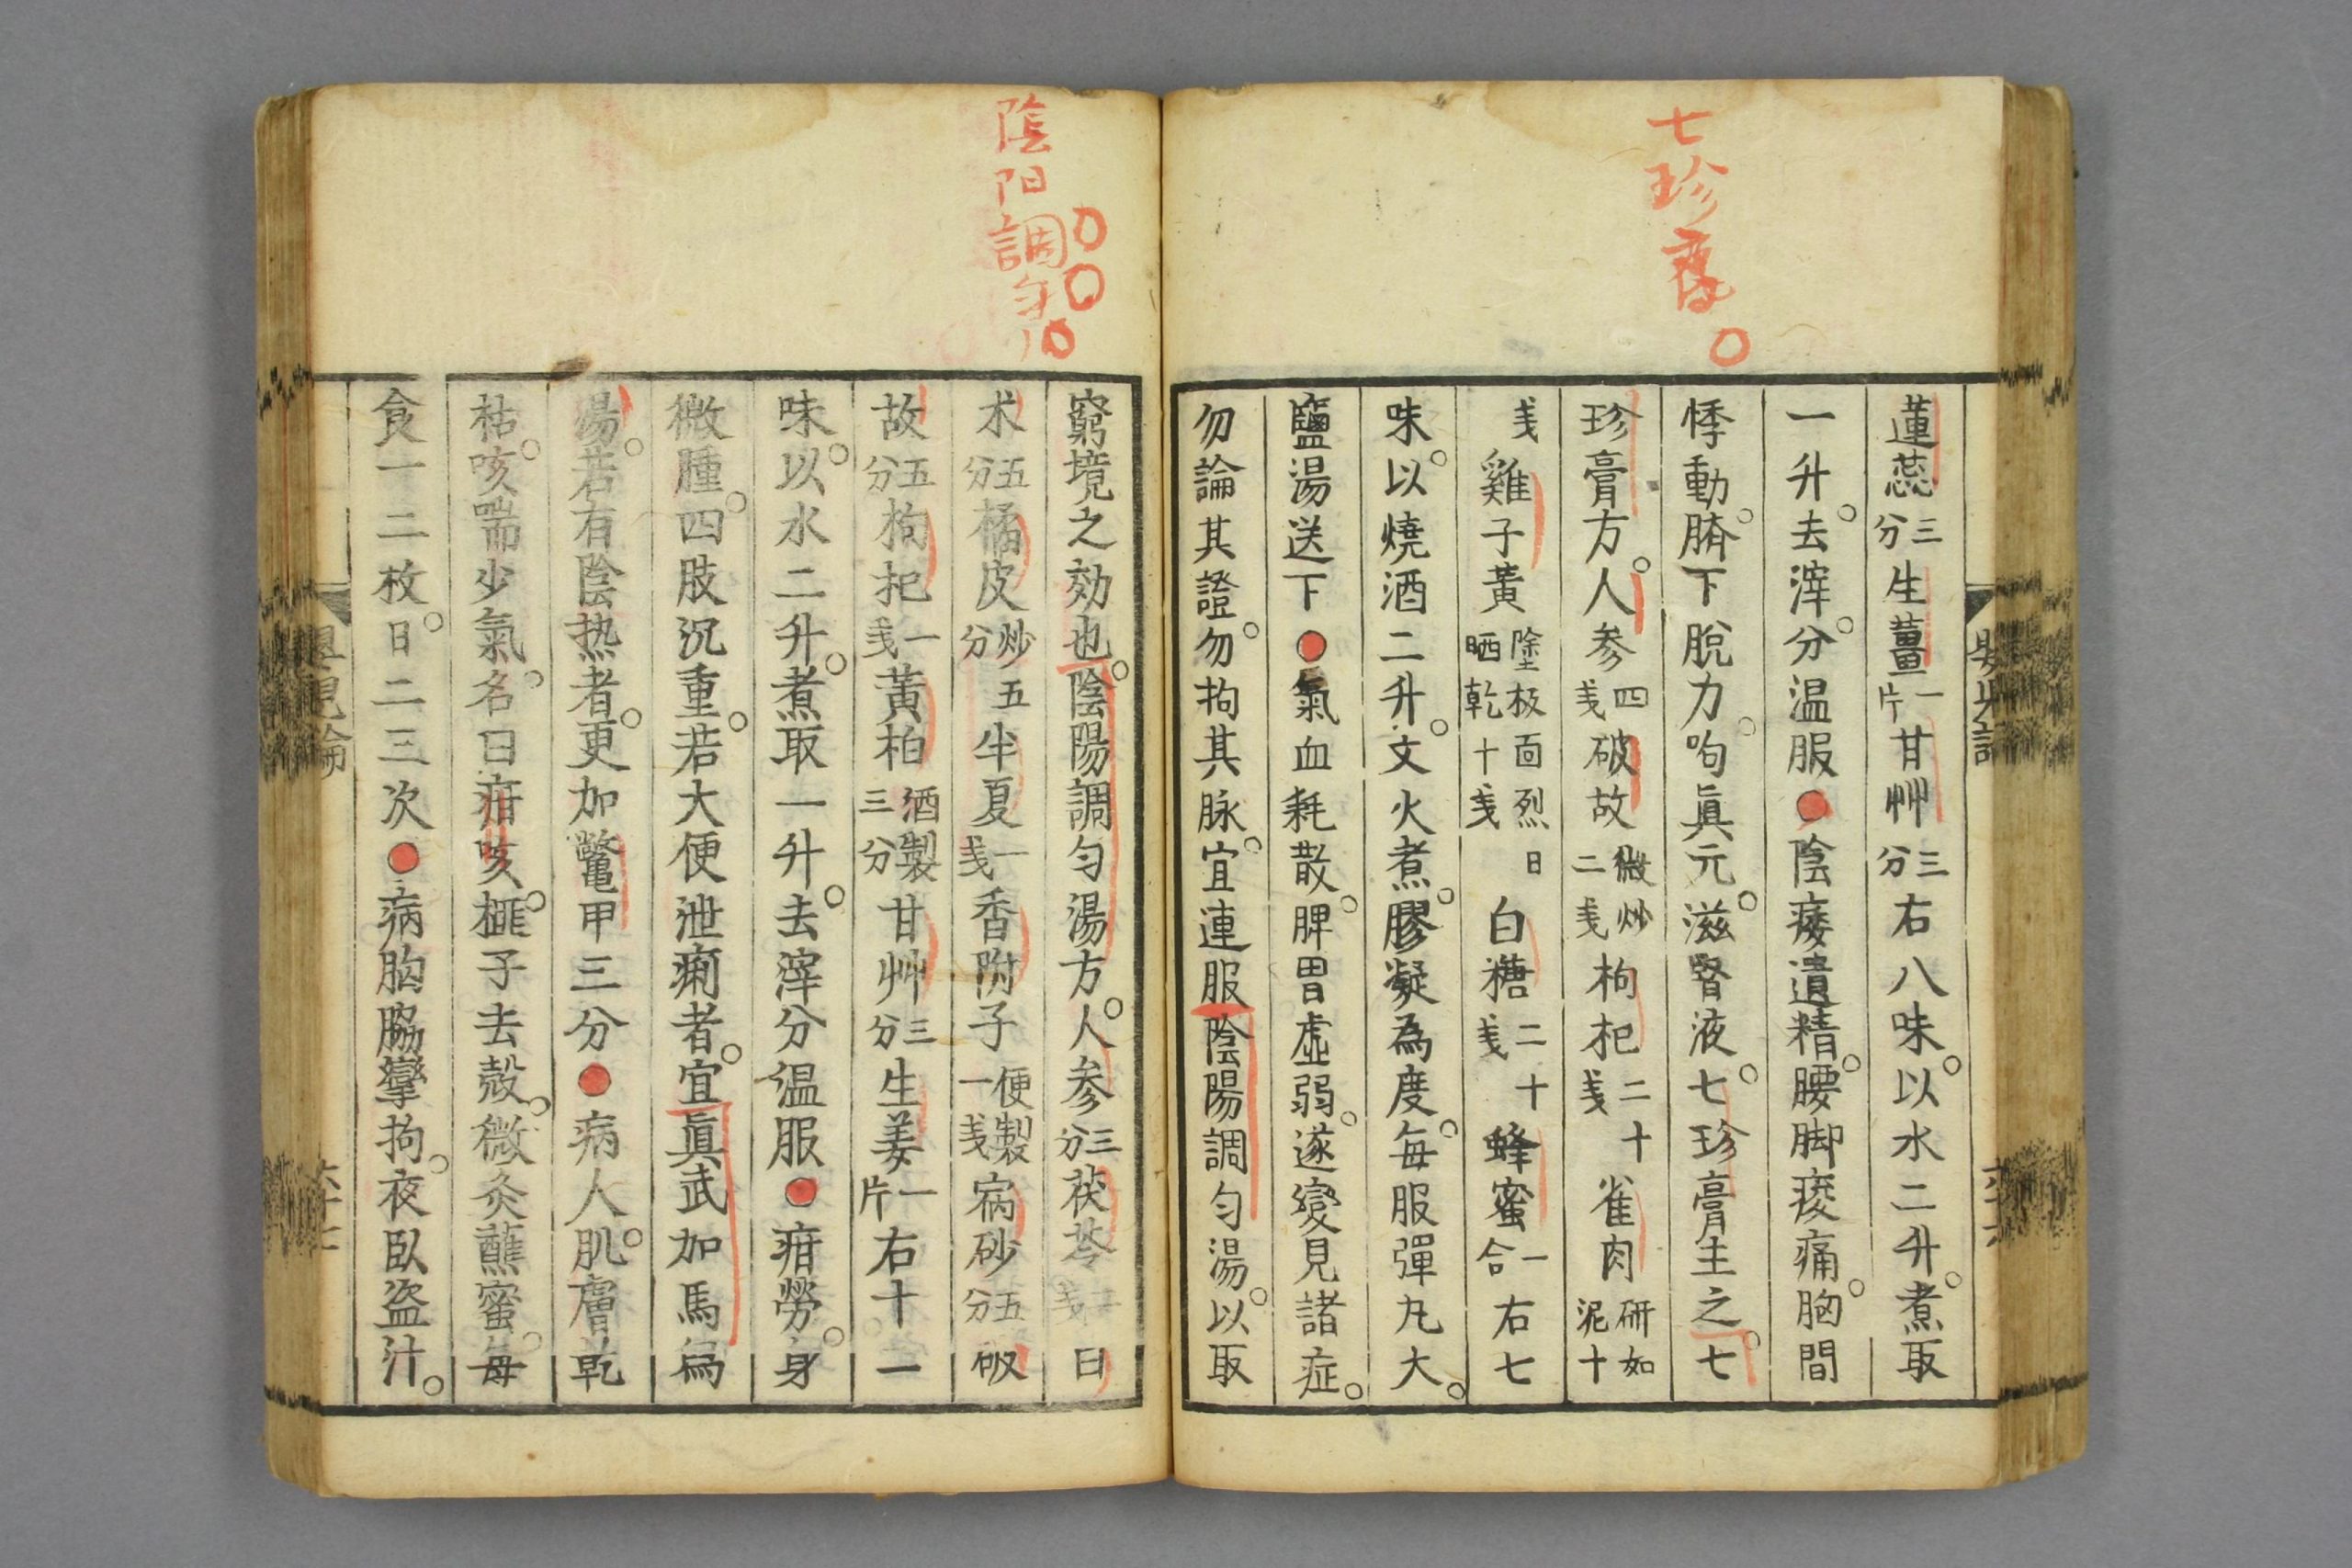 七珍膏
蓮蕊三分生薑一片甘艸三分右八味以水二升煮取
一升去滓分温服陰痿遺精腰脚痠痛胸間
悸動臍下脫力呴眞元滋腎液七珍膏主之七
珍膏方人参四戔破故微炒二戔枸杞二十戔雀肉研如泥十
戔雞子黃塗板面烈日晒乾十戔白糖二十戔蜂蜜一合右七
味以燒酒二升文火煮膠凝為度每服彈丸大
鹽湯送下氣血耗散脾胃虛弱遂變見諸症
勿論其證勿拘其脉宜連服陰陽調匀湯以取
陰阳調匀
窮境之効也陰陽調匀湯方人参三分茯苓戔白
术五分橘皮炒五分半夏一戔香附子便製一戔宿砂五分破
故五分枸杞一戔黃柏酒製三分甘艸三分生姜一片右十一
味以水二升煮取一升去滓分温服疳勞身
微腫四肢沉重若大便泄痢者宜眞武加馬烏
湯若有陰热者更加鼈甲三分病人肌膚乾
枯咳喘少氣名曰疳咳榧子去殼微灸蘸蜜每
食一二枚日二三次病胸脇攣拘夜臥盗汁